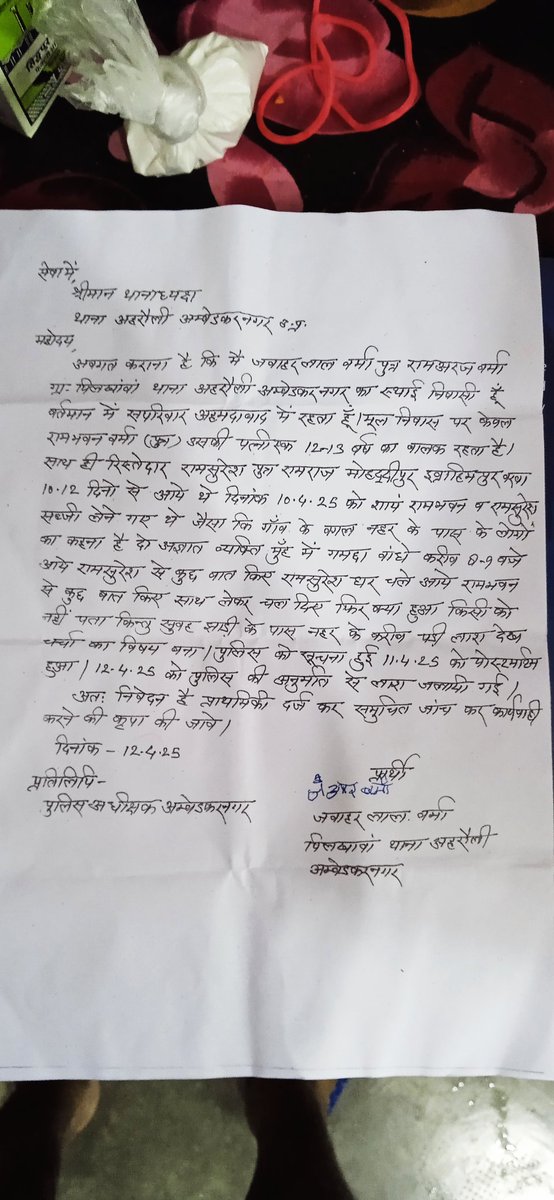 सेवा में,
श्रीमान थानाध्यक्ष
थाना अहरौली अम्बेडकरनगर उ.प्र.
महोदय,
अवगत कराना है कि मैं जवाहर लाल वर्मा पुत्र रामअरज वर्मा
ग्रा- थाना अहरौली अम्बेडकरनगर का स्थाई निवासी हूँ
वर्तमान में सपरिवार अहमदाबाद में रहता हूँ। मूल निवास पर केवल
रामभवन वर्मा (पुत्र) उसकी पत्नी एक 12-13 वर्ष का बालक रहता है।
साथ ही रिस्तेदार रामसुरेश पुत्र रामराज
10.12 दिनो से आये थे दिनांक 10.4.25 को शायं रामभवन व रामसुरेश
सब्जी लेने गए थे जैसा कि गाँव के बगल नहर के पास के लोगों
का कहना है दो अज्ञात व्यक्ति मुँह में गमछा बांधे करीब 8-9 बजे
आये रामसुरेश से कुछ बात किए रामसुरेश घर चले आये रामभवन
से कुछ बात किए साथ लेकर चल दिए फिर क्या हुआ किसी को
नहीं पता किन्तु सुबह झाड़ी के पास नहर के करीब पड़ी लाश देख
चर्चा का विषय बना। पुलिस को सूचना हुई 11.4.25 को पोस्टमार्टम
हुआ। 12.4.25 को पुलिस की अनुमति से लाश जलायी गई।
अतः निवेदन है प्राथमिकी दर्ज कर समुचित जांच कर कार्यवाही
करने की कृपा की जावे।
दिनांक - 12.4.25
प्रार्थी
प्रतिलिपि-
पुलिस अधीक्षक अम्बेडकरनगर
जवाहर लाल वर्मा
थाना अहरौली
अम्बेडकरनगर